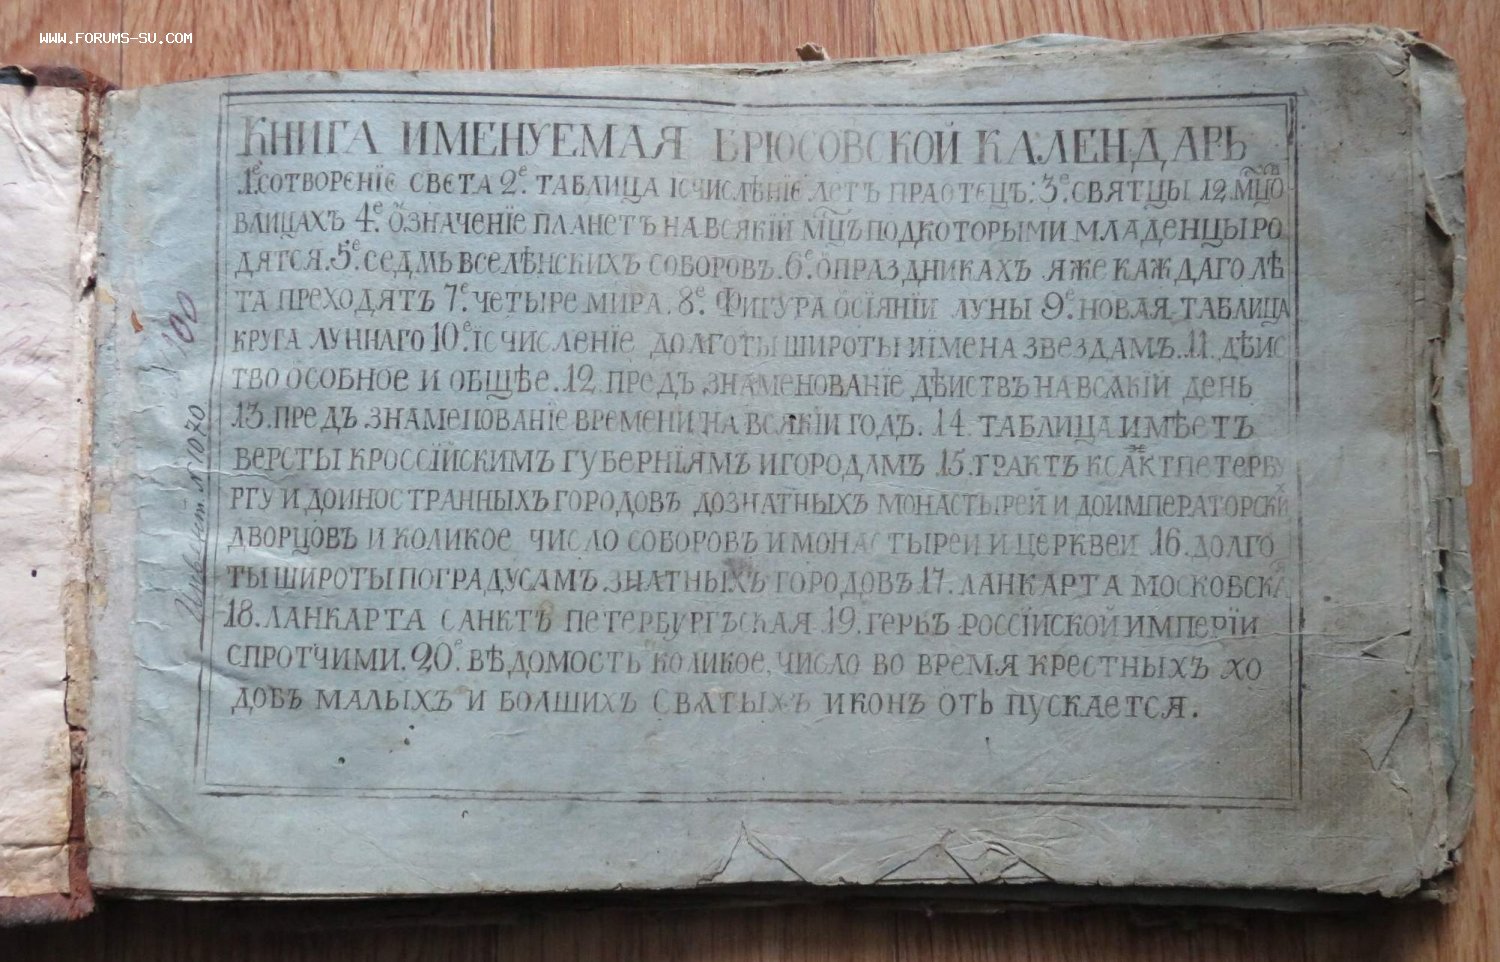 WWW.FORUMS-SU.COM
КНИГА ИМЕНУЕМАЯ БРЮСОВСКОЙ КАЛЕНДАРЬ
1е. СОТВОРЕНІЕ СВЕТА 2е. ТАБЛИЦА ІСЧИСЛѢНІЕ ЛЕТЪ ПРАОТЕЦЪ: 3е. СВЯТЦЫ 12 МЦОВ
ВЛИЦАХЪ 4е. ОЗНАЧЕНІЕ ПЛАНЕТЪ НА ВСЯКІЙ МЦЪ ПОДКОТОРЫМИ МЛАДЕНЦЫ РО
ДЯТСЯ. 5е. СЕДМЬ ВСЕЛѢНСКИХЪ СОБОРОВЪ. 6е. О ПРАЗДНИКАХЪ ЯЖЕ КАЖДАГО ЛѢ
ТА ПРЕХОДЯТЪ 7е. ЧЕТЫРЕ МИРА. 8е. ФИГУРА ОСІЯНІИ ЛУНЫ 9е. НОВАЯ ТАБЛИЦА
КРУГА ЛУННАГО 10е. ІСЧИСЛЕНІЕ ДОЛГОТЫ ШИРОТЫ ИІМЕНА ЗВЕЗДАМЪ. 11. ДѢИС
ТВО ОСОБНОЕ И ОБЩѢЕ. 12. ПРЕДЪ ЗНАМЕНОВАНІЕ ДѢИСТВЪ НА ВСѦКІЙ ДЕНЬ
13. ПРЕДЪ ЗНАМЕНОВАНІЕ ВРЕМЕНИ НА ВСЯКІИ ГОДЪ. 14. ТАБЛИЦА ИМѢЕТЪ
ВЕРСТЫ КРОССІЙСКИМЪ ГУБЕРНІЯМЪ И ГОРОДАМЪ 15. ТРАКТЪ КСАКТПЕТЕРБУ
РГУ И ДОИНОСТРАННЫХЪ ГОРОДОВЪ ДОЗНАТНЫХЪ МОНАСТЫРЕЙ И ДОИМПЕРАТОРСКИХ
ДВОРЦОВЪ И КОЛИКОЕ ЧИСЛО СОБОРОВЪ И МОНАСТЫРЕИ И ЦЕРКВЕИ 16. ДОЛГО
ТЫ ШИРОТЫ ПОГРАДУСАМЪ ЗНАТНЫХЪ ГОРОДОВЪ 17. ЛАНКАРТА МОСКОВСКАЯ
18. ЛАНКАРТА САНКТЪ ПЕТЕРБУРГЪСКАЯ 19. ГЕРБЪ РОССІЙСКОЙ ИМПЕРІИ
СПРОТЧИМИ. 20е. ВѢДОМОСТЬ КОЛИКОЕ ЧИСЛО ВО ВРЕМЯ КРЕСТНЫХЪ ХО
ДОВЪ МАЛЫХЪ И БОЛШИХЪ СВѦТЫХЪ ИКОНЪ ОТЬ ПУСКАЕТСЯ.
100
№ 1070